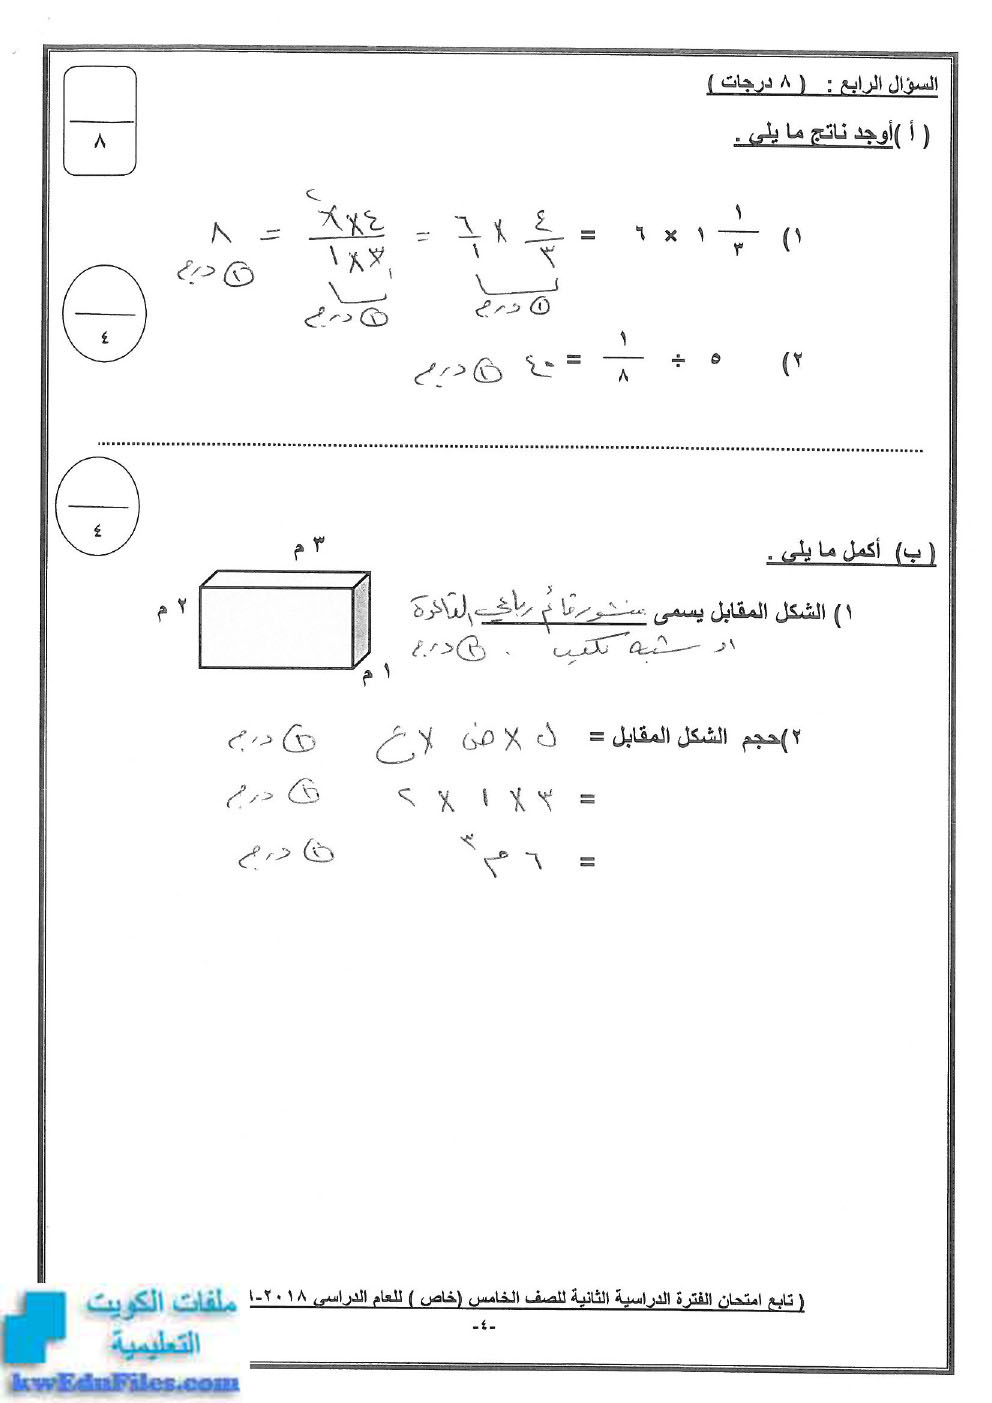 السؤال الرابع : ( ٨ درجات )
٨
( أ ) أوجد ناتج ما يلي .
١) ١/٣ ١ × ٦ = ٤/٣ × ٦/١ = ٤×٦/٣×١ = ٨
٢
١
① درجة
① درجة
① درجة
٤
٢) ٥ ÷ ١/٨ = ٤٠ ① درجة
٤
( ب) أكمل ما يلي .
٣ م
٢ م
١ م
١) الشكل المقابل يسمى منشور قائم رباعي القاعدة
او شبه مكعب . ① درجة
٢) حجم الشكل المقابل = ل × ض × ع ① درجة
= ٣ × ١ × ٢ ① درجة
= ٦ م٣ ① درجة
( تابع امتحان الفترة الدراسية الثانية للصف الخامس (خاص ) للعام الدراسي ٢٠١٨-
-٤-
ملفات الكويت
التعليمية
kwEduFiles.com